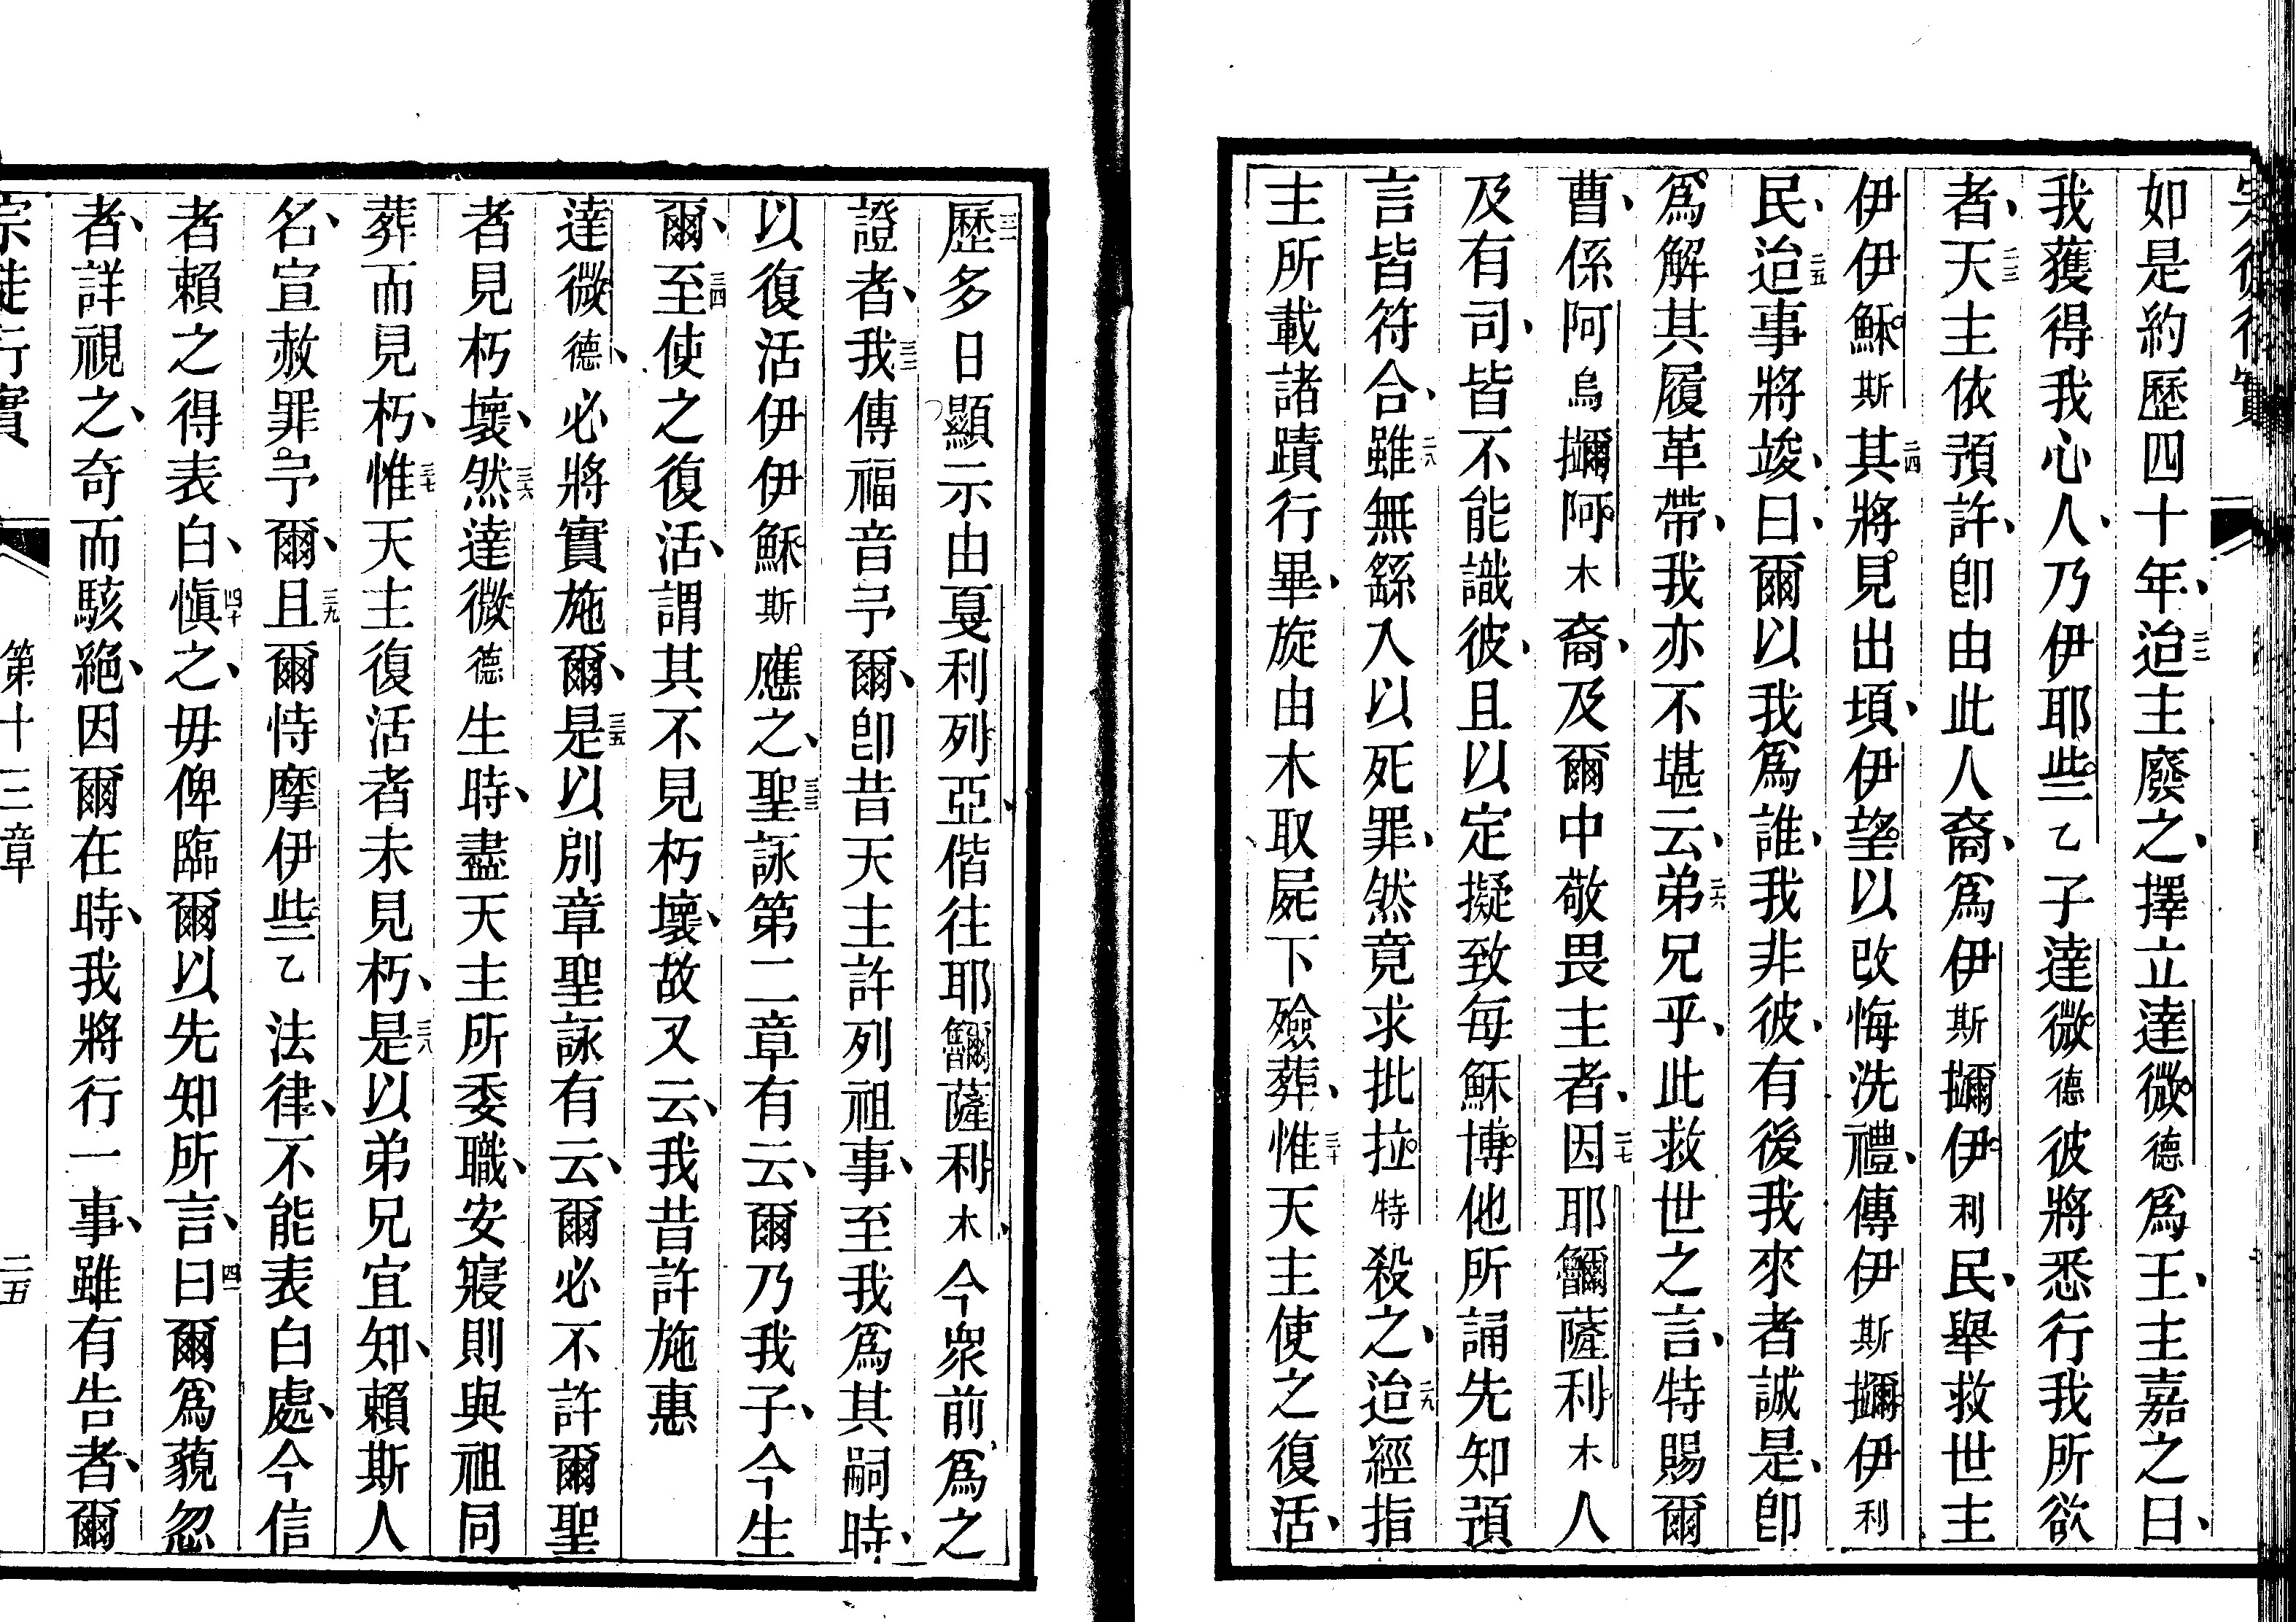 如是約歷四十年、迨主廢之、擇立達微德爲王、主嘉之曰、
我獲得我心人、乃伊耶些乙子達微德彼將悉行我所欲
者、天主依預許、卽由此人裔、爲伊斯擟伊利民、舉救世主
伊伊穌斯其將見出頃、伊望以改悔洗禮、傳伊斯擟伊利
民、迨事將竣、曰、爾以我爲誰、我非彼、有後我來者誠是、卽
爲解其履革帶、我亦不堪云、弟兄乎、此救世之言、特賜爾
曹、係阿烏擟阿木裔、及爾中敬畏主者、因耶㽀薩利木人
及有司、皆不能識彼、且以定擬致每穌博他所誦先知預
言皆符合、雖無繇入以死罪、然竟求批拉特殺之、迨經指
主所載諸蹟行畢、旋由木取屍下殮葬、惟天主使之復活、
歷多日顯示由戛利列亞、偕往耶㽀薩利木、今衆前爲之
證者、我傳福音予爾、卽昔天主許列祖事、至我爲其嗣時、
以復活伊伊穌斯應之、聖詠第二章有云、爾乃我子、今生
爾、至使之復活、謂其不見朽壞、故又云、我昔許施惠
達微德、必將實施爾、是以別章聖詠有云、爾必不許爾聖
者見朽壞、然達微德生時、盡天主所委職、安寢則與祖同
葬而見朽、惟天主復活者未見朽、是以弟兄宜知、賴斯人
名、宣赦罪予爾、且爾恃摩伊些乙法律、不能表白處、今信
者賴之得表白、愼之、毋俾臨爾以先知所言、曰爾爲藐忽
者、詳視之、奇而駭絕、因爾在時、我將行一事、雖有告者、爾
宗徒行實
第十三章
二五